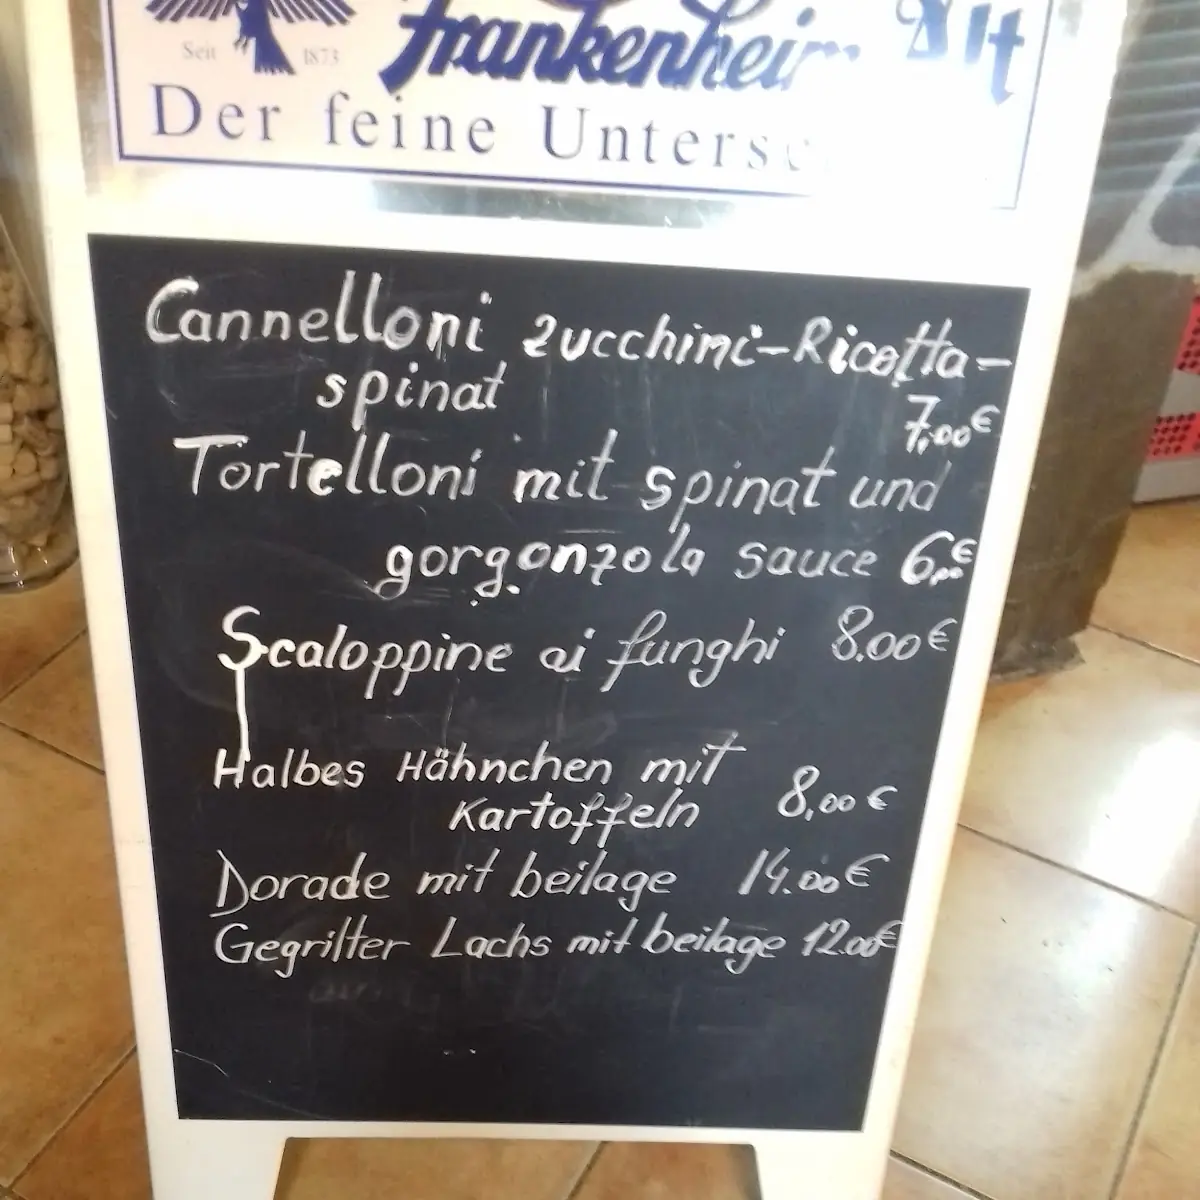 Seit 1873
Frankenheim Alt
Der feine
Cannelloni zucchini-Ricotta-
spinat
7,00€
Tortelloni mit spinat und
gorgonzola sauce 6,00€
Scaloppine ai funghi 8.00€
Halbes Hähnchen mit
Kartoffeln 8,00€
Dorade mit beilage 14.00€
Gegrilter Lachs mit beilage 12.00€